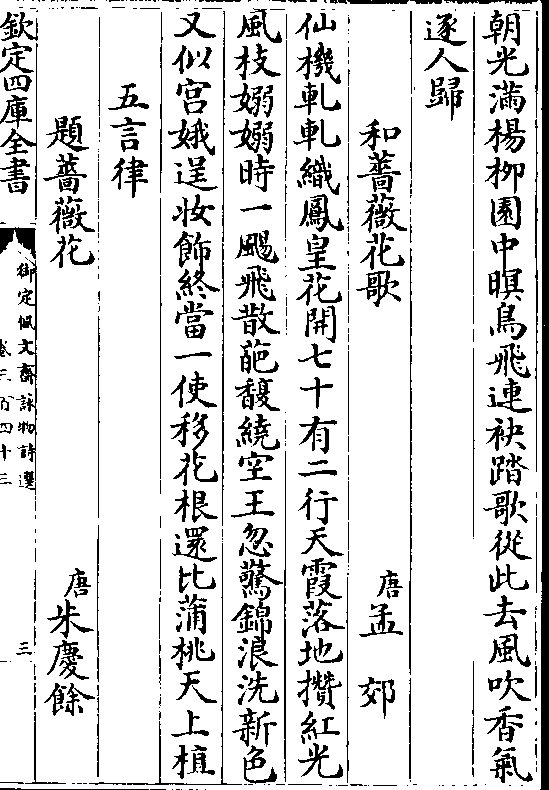 朝光滿楊柳園中暝鳥飛連袂踏歌從此去風吹香氣
逐人歸
和薔薇花歌　唐孟郊
仙機軋軋織鳳皇花開七十有二行天霞落地攢紅光
風枝嫋嫋時一颺飛散葩馥繞空王忽驚錦浪洗新色
又似宮娥逞妝飾終當一使移花根還比蒲桃天上植
五言律
題薔薇花　唐朱慶餘
欽定四庫全書
御定佩文齋詠物詩選
卷三百四十三
三